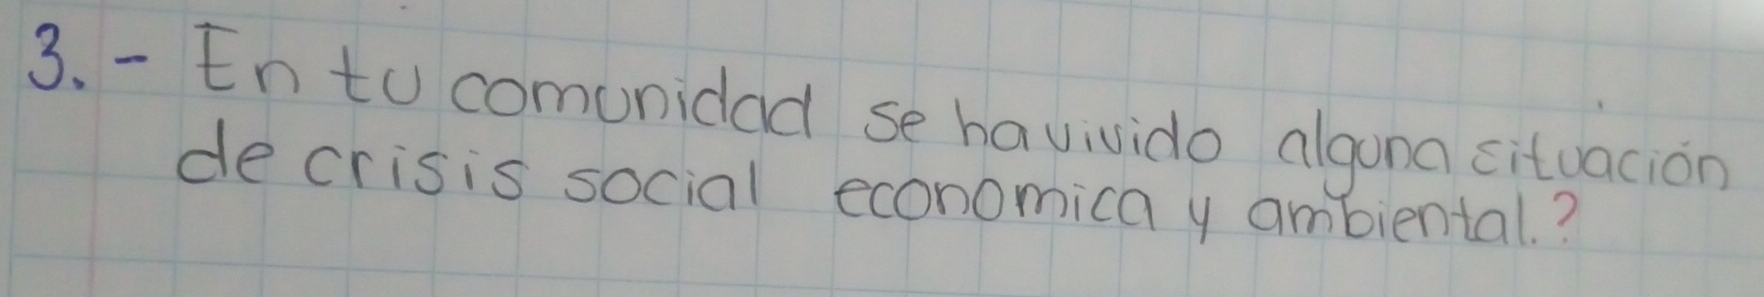 3.- En tu comunidad se ha vivido alguna situación
de crisis social economica y ambiental.?